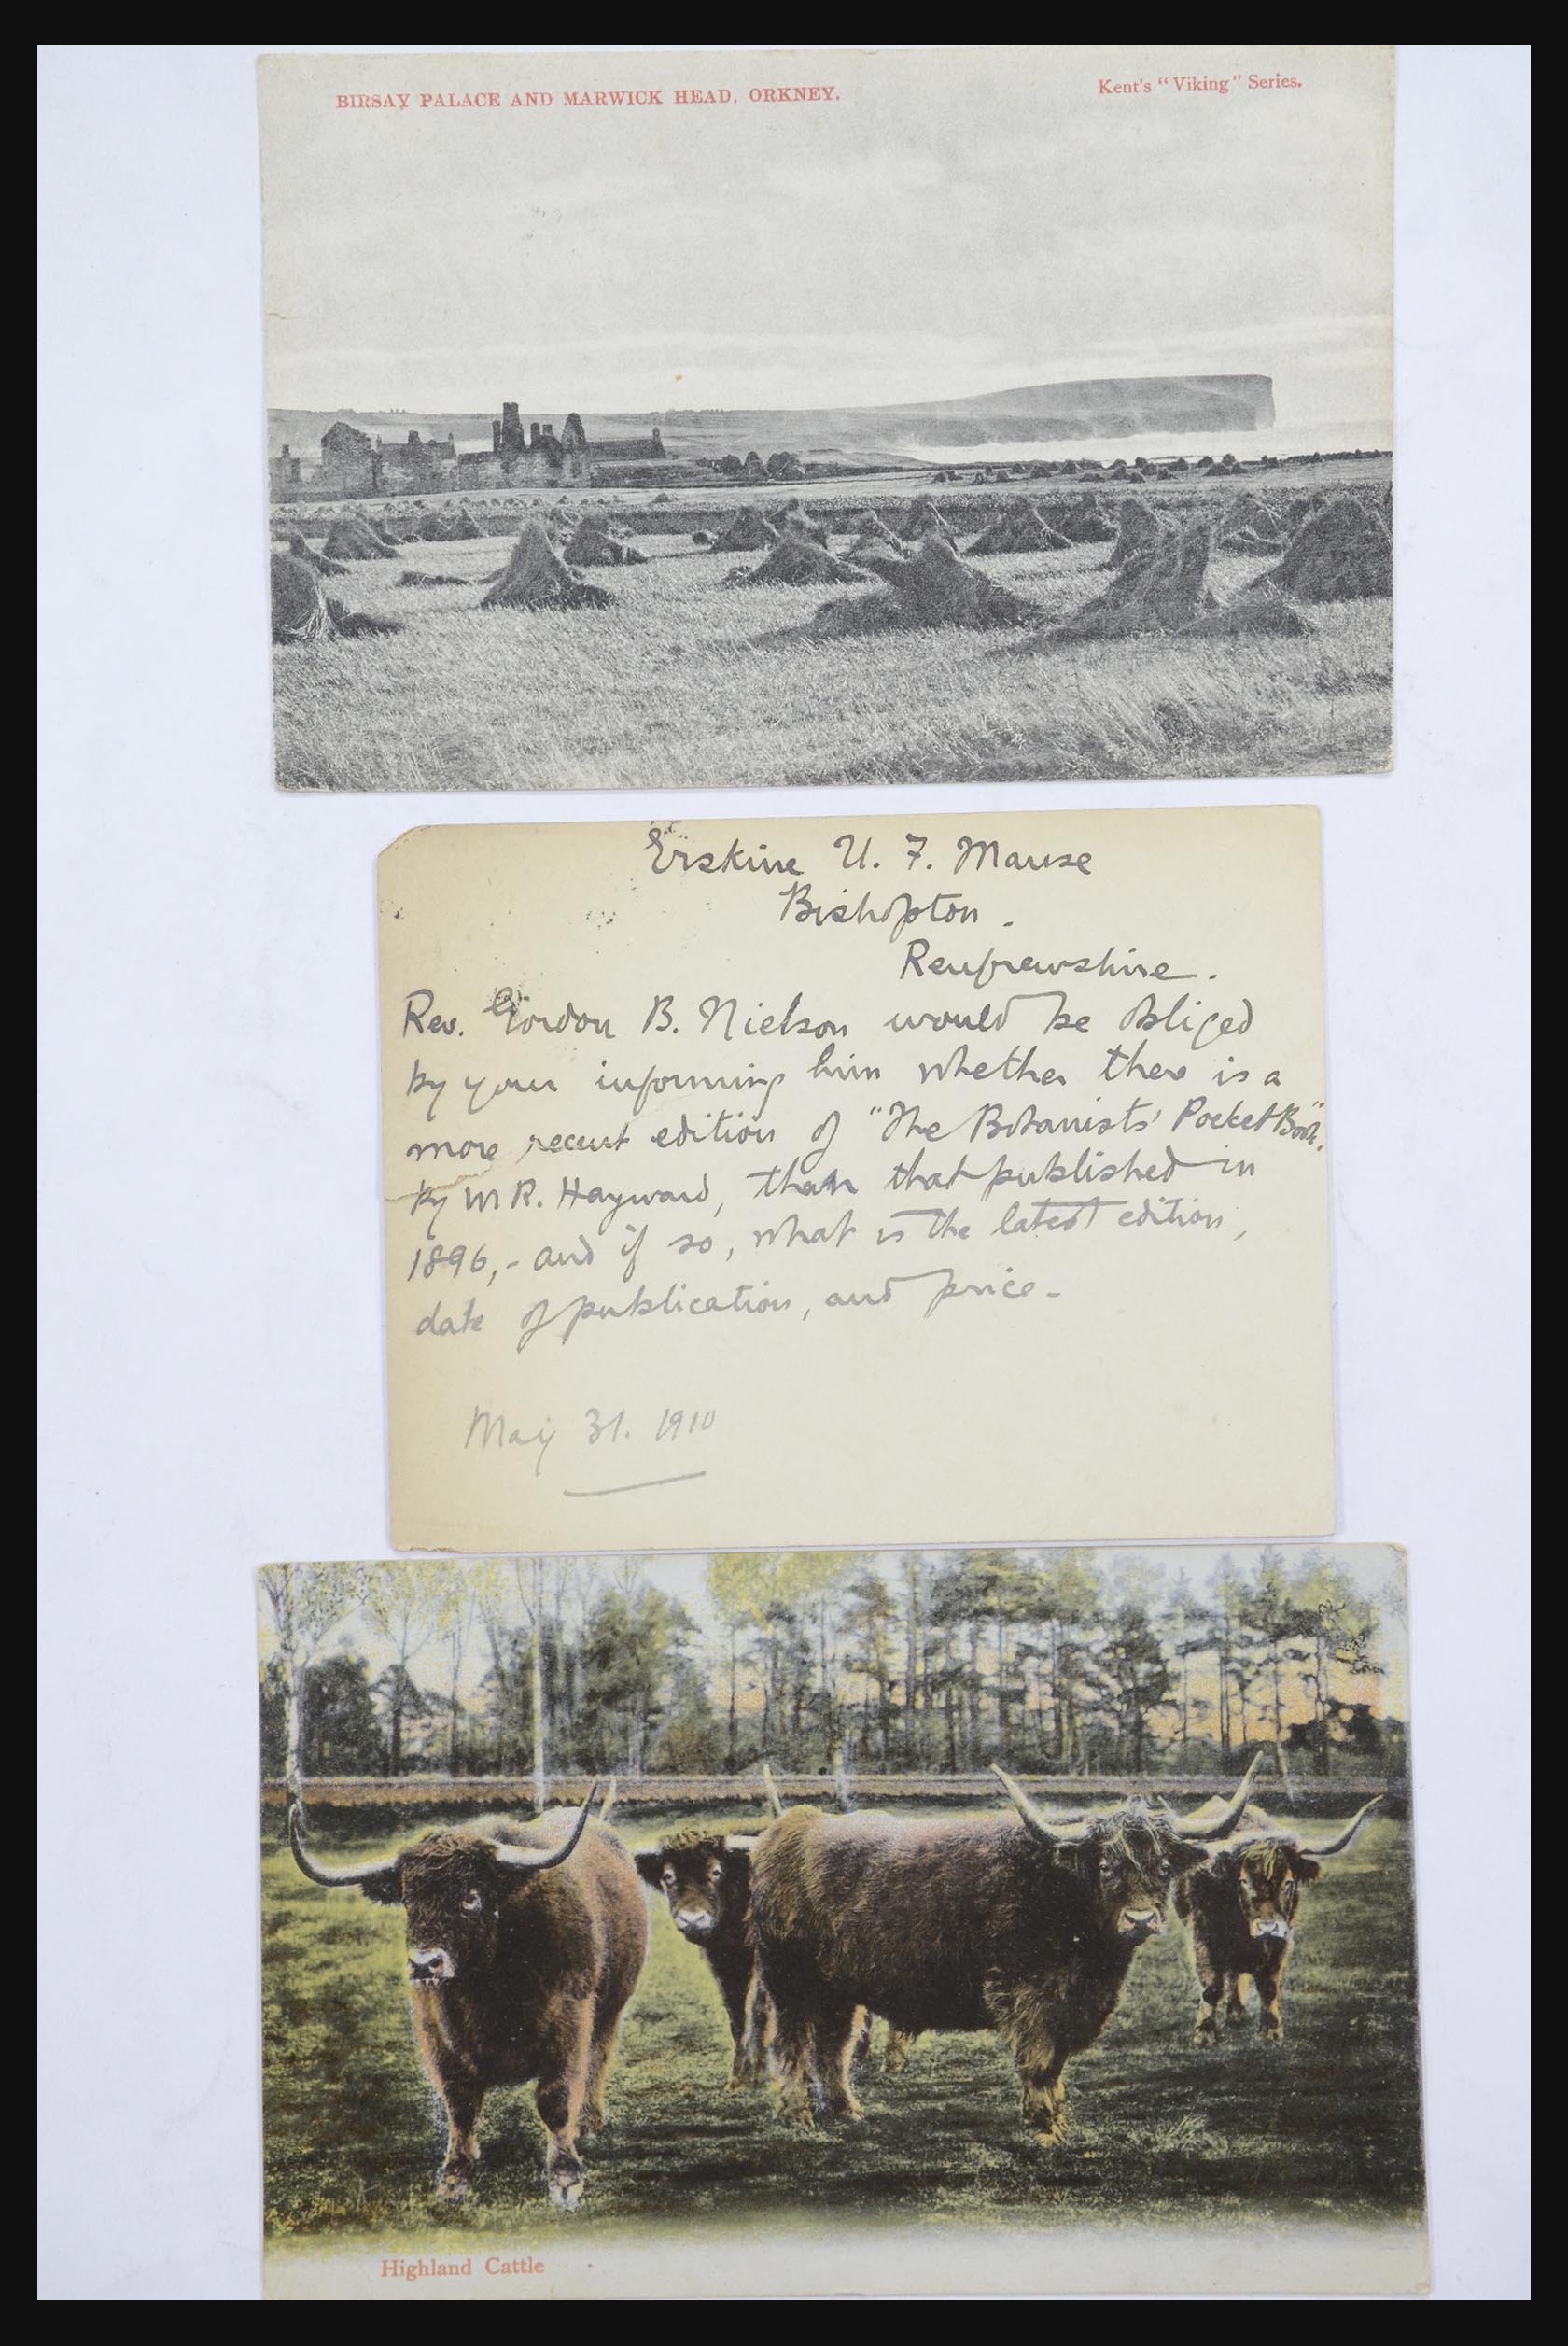 BIRSAY PALACE AND MARWICK HEAD, ORKNEY.
Kent's "Viking" Series.
Erskine U. F. Manse
Bishopton.
Renfrewshire.
Rev. Gordon B. Nielson would be obliged
by your informing him whether there is a
more recent edition of "The Botanists' Pocket Book"
by W R. Hayward, than that published in
1896,- and if so, what is the latest edition,
date of publication, and price-
May 31. 1910
Highland Cattle